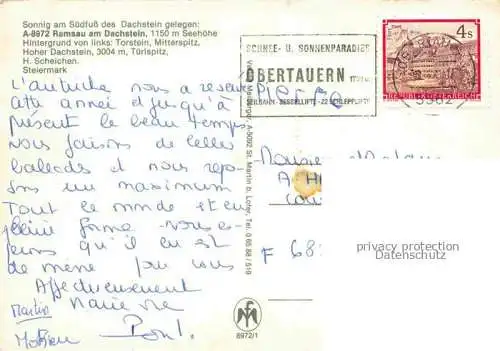 Sonnig am Südfuß des Dachstein gelegen:
A-8972 Ramsau am Dachstein, 1150 m Seehöhe
Hintergrund von links: Torstein, Mitterspitz,
Hoher Dachstein, 3004 m, Türlspitz,
H. Scheichen.
Steiermark
L'autriche nous a reservé
cette année et jusqu'à
présent le beau temps
nous faisons de belles
ballades et nous repo
sons un maximum
Tout le monde et en
pleine forme nous es-
perons qu'il en est
de même pour vous
Affectueusement
Martin
Marie
Pierre
SCHNEE- U. SONNENPARADIES
OBERTAUERN
SEILBAHN-SESSELLIFTE-22 SCHLEPPLIFTE
4 S
REPUBLIK ÖSTERREICH
5562
A-5092 St. Martin b. Lofer, Tel. 0 65 88 / 519
8972/1
Monsieur
F 68
privacy protection
Datenschutz